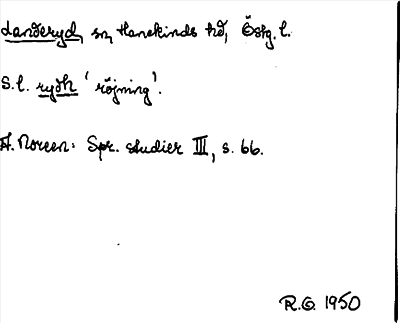 Landeryd, sn, Hanekinds hd, Östg. l.
S.l. rydh 'röjning'.
A. Noreen: Spr. studier III, s. 66.
R.G. 1950